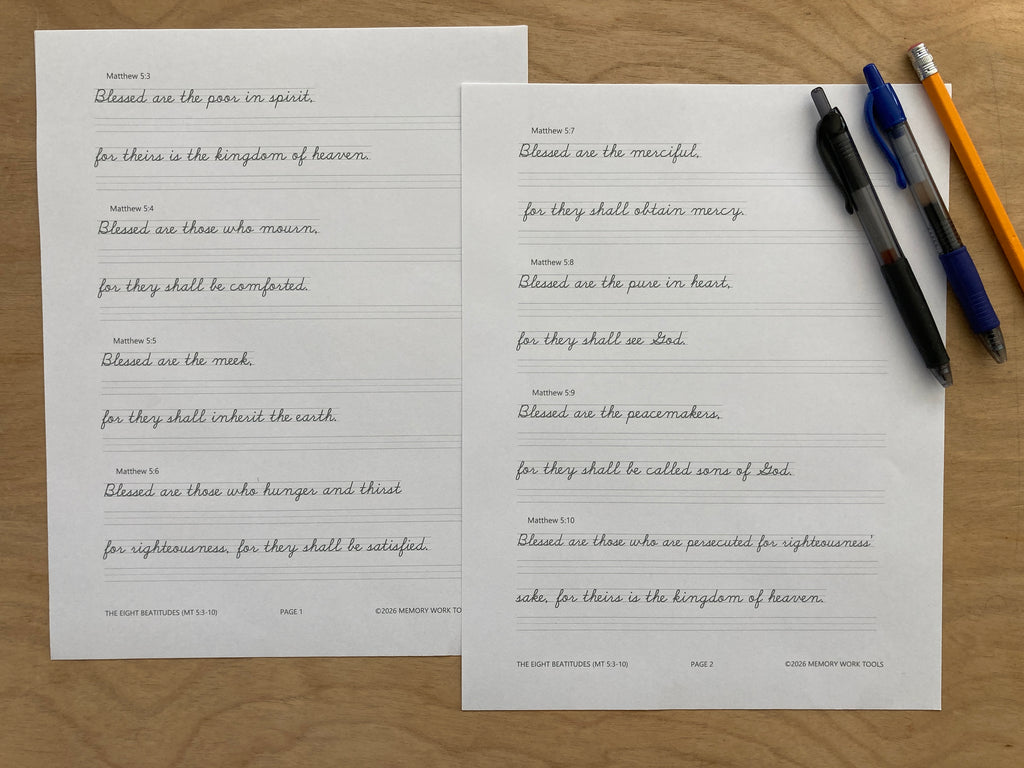 Matthew 5:3
Blessed are the poor in spirit,
for theirs is the kingdom of heaven.
Matthew 5:4
Blessed are those who mourn,
for they shall be comforted.
Matthew 5:5
Blessed are the meek,
for they shall inherit the earth.
Matthew 5:6
Blessed are those who hunger and thirst
for righteousness, for they shall be satisfied.
THE EIGHT BEATITUDES (MT 5:3-10) PAGE 1 ©2026 MEMORY WORK TO
Matthew 5:7
Blessed are the merciful,
for they shall obtain mercy.
Matthew 5:8
Blessed are the pure in heart,
for they shall see God.
Matthew 5:9
Blessed are the peacemakers,
for they shall be called sons of God.
Matthew 5:10
Blessed are those who are persecuted for righteousness'
sake, for theirs is the kingdom of heaven.
THE EIGHT BEATITUDES (MT 5:3-10) PAGE 2 ©2026 MEMORY WORK TOOLS